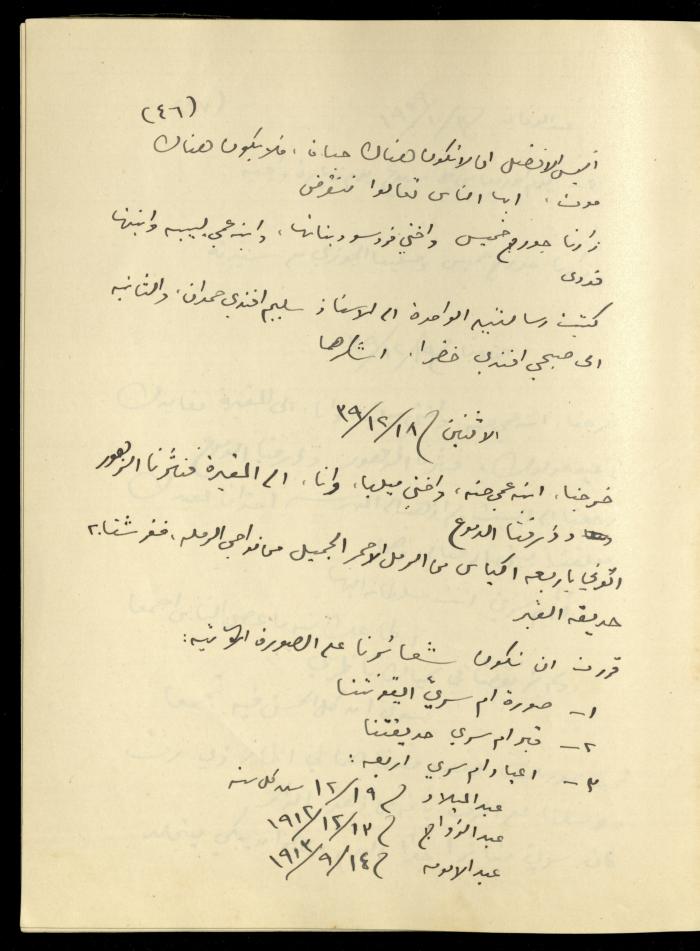 (٤٦)
أليس الافضل ان لا تكون هناك حياة، فلا يكون هناك
موت. ايها الناس تعالوا ننقرض
زارنا جورج خميس واختي فردوس وبناتها، وابنة عمي لبيبه وابنتها
فدوى
كتبت رسالتين الواحدة الى الاستاذ سليم افندي حمدان، والثانيه
الى صبحي افندي خضرا. اشكرهما
الاثنين ٣٩/١٢/١٨
خرجنا، ابنة عمي حنه، واختي ميليا، وانا، الى المقبرة فنثرنا الزهور
وذرفنا الدموع
اتوني باربعه اكياس من الرمل الاحمر الجميل من نواحي الرمله، ففرشنا به
حديقه القبر
قررت ان تكون شعائرنا على الصورة الآتيه:
١ــ صورة ام سري ايقونتنا
٢ــ قبر ام سري حديقتنا
٣ــ اعياد ام سري اربعه:
عيد الميلاد ١٢/١٩ من كل سنه
عيد الزواج ١٩١٢/١٢/١٣
عيد الامومه ١٩١٣/٩/١٤